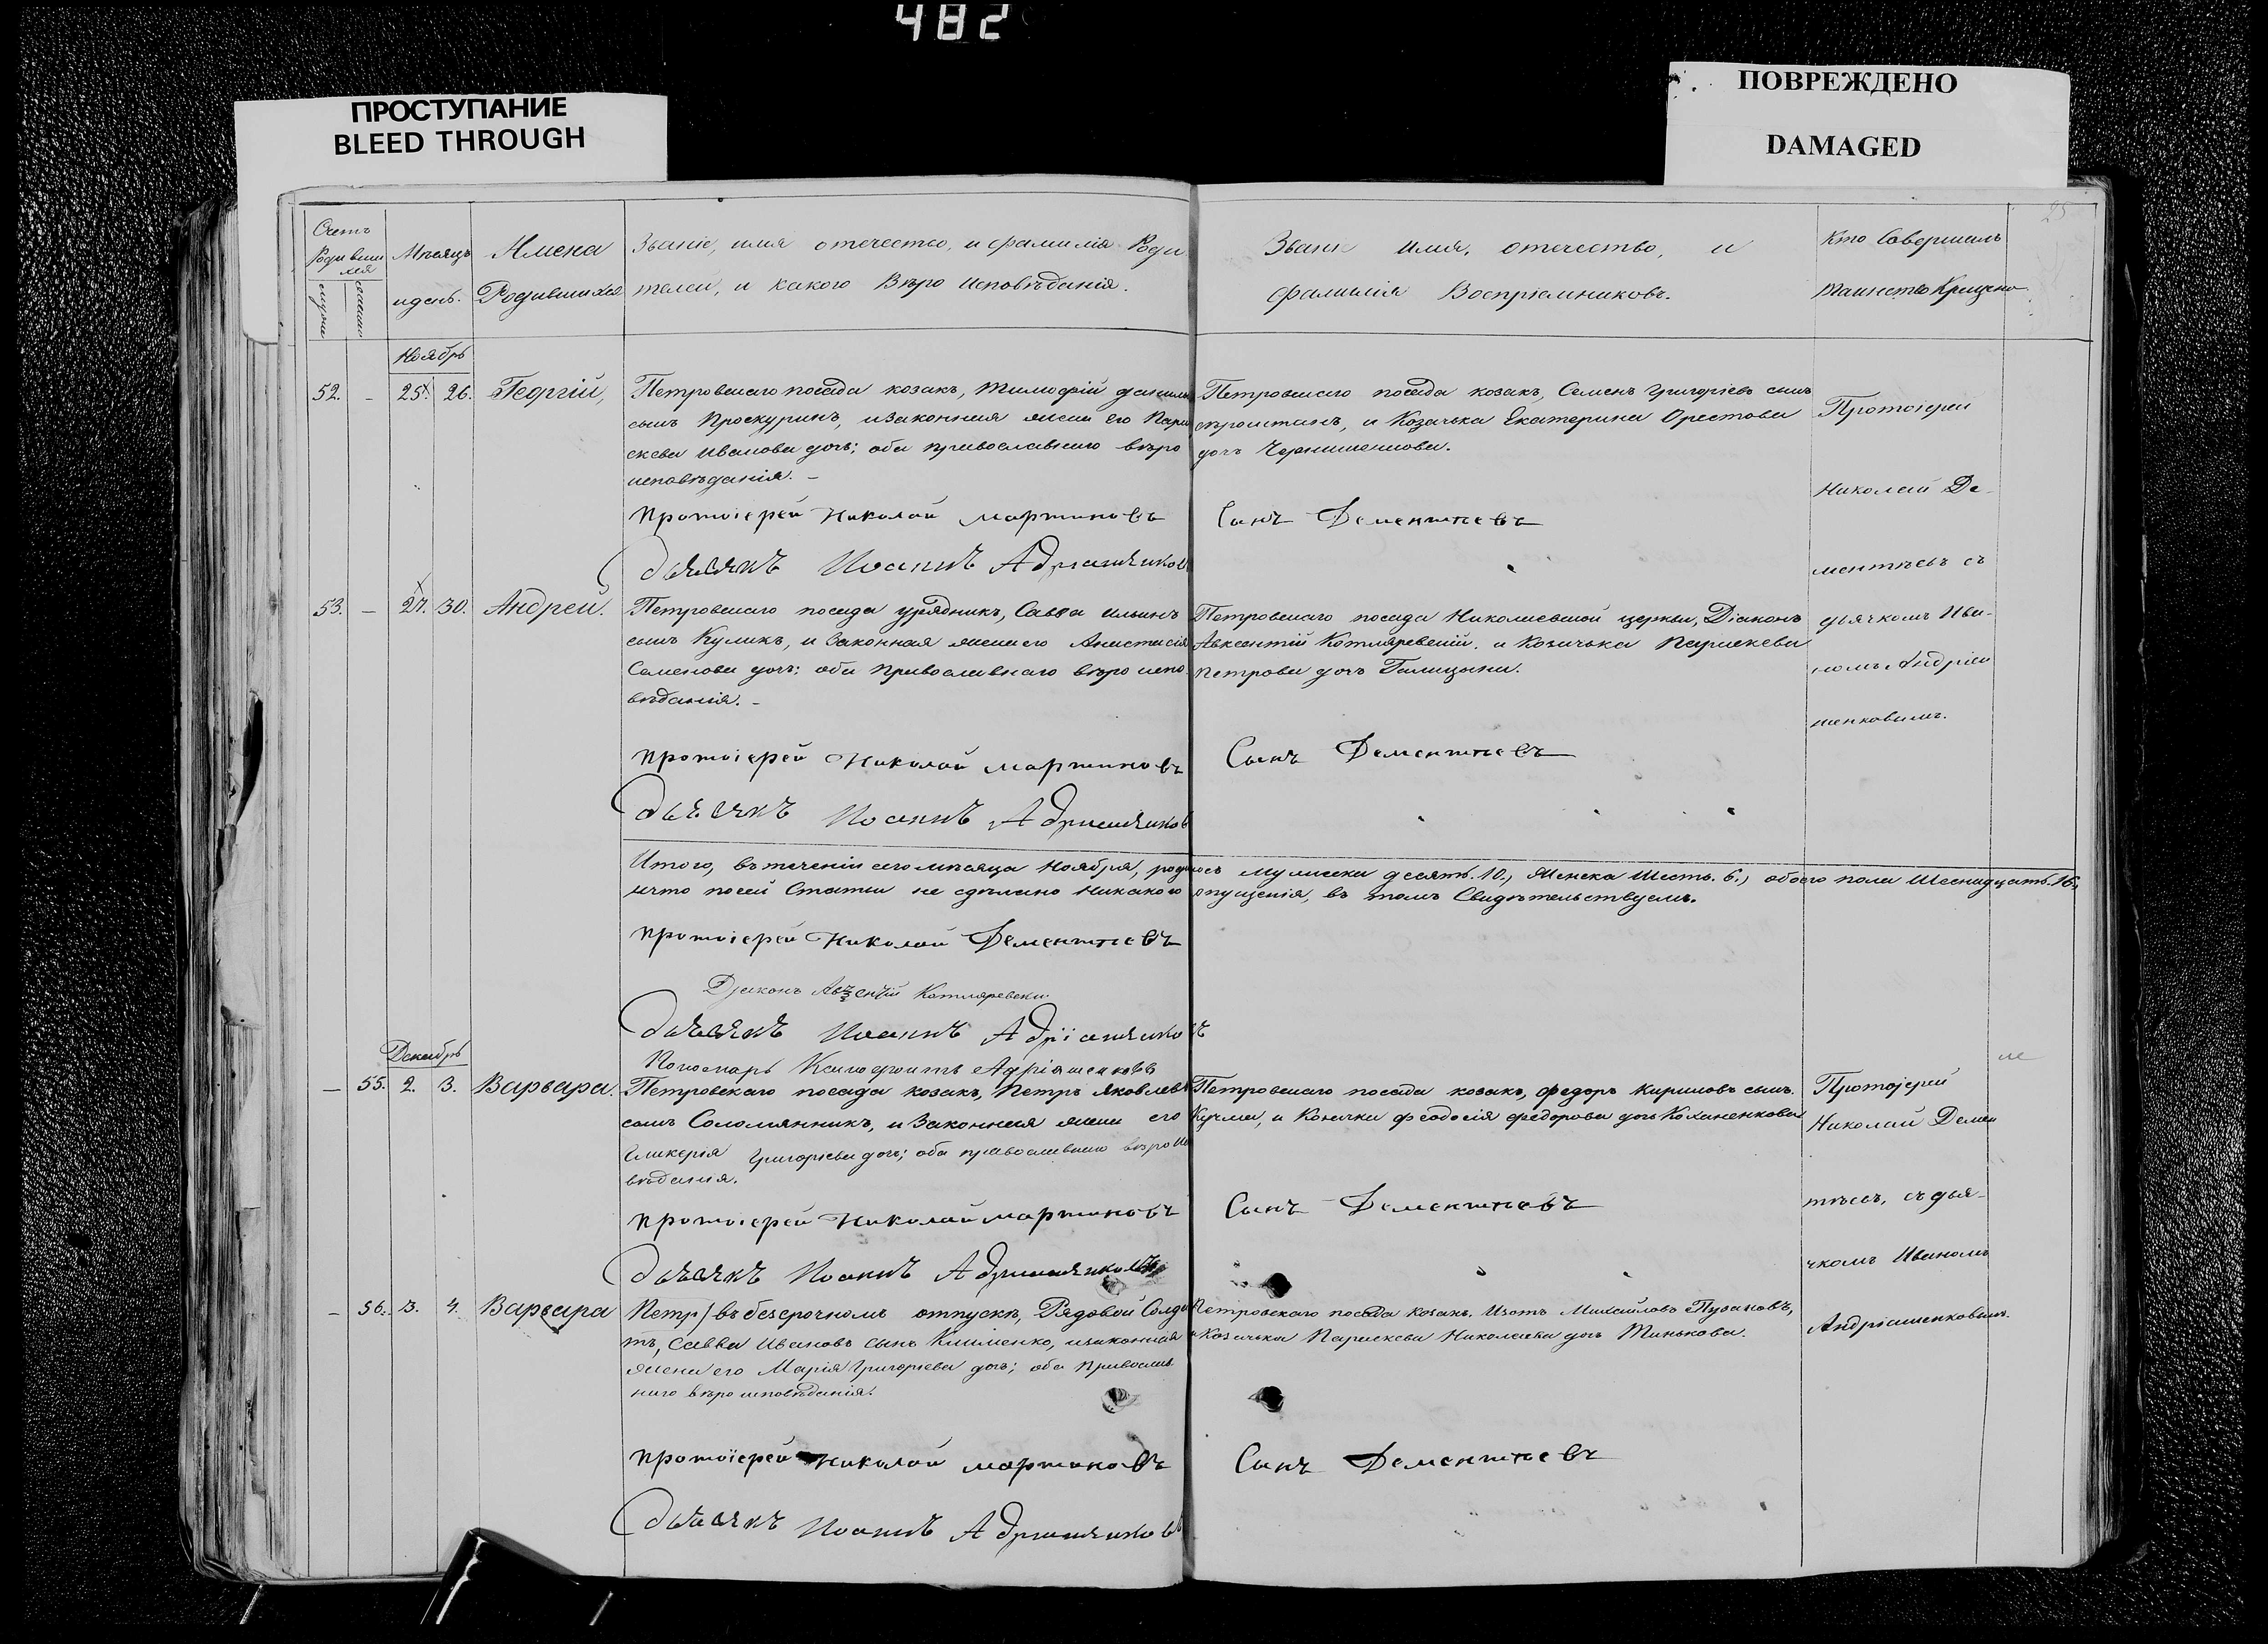 482
ПРОСТУПАНИЕ
BLEED THROUGH
ПОВРЕЖДЕНО
DAMAGED
25
Счетъ
Родивши
хся
Мѣсяцъ
и день.
Имена
Родившихся
Званіе, имя отечество, и фамилія Роди
телей, и какого Вѣро Исповѣданія.
Званіе имя, отечество, и
фамилія Воспріемниковъ.
Кто Совершалъ
таинство Крещенія
Ноябрь
52. – 25. 26. Георгій,
Петровскаго посада козакъ, Тимофій
сынъ Проскуринъ, и законная жена его Пара
скева Иванова дочь; оба православнаго вѣро
исповѣданія. –
Протоіерей Николай Мартиновъ
Дьячекъ Иоаннъ Адриашенков
Петровскаго посада козакъ, Семенъ Григоріевъ сынъ
и Козачька Екатерина Орестова
дочь
Сынъ Дементѣевъ
Протоіерей
Николай Де
ментѣевъ съ
дьячкомъ Ива-
номъ Андріа
шенковымъ.
53. – 27. 30. Андрей.
Петровскаго посада урядникъ, Савва Ильинъ
сынъ Куликъ, и Законная жена его Анастасія
Семенова дочь; оба Православнаго вѣро испо
вѣданія. –
Протоіерей Николай Мартиновъ
Дьячекъ Иоаннъ Адриашенков
Петровскаго посада Николаевской церкви, Діаконъ
Авксентій Котляревскій, и Козачька Параскева
Петрова дочь Галицына.
Сынъ Дементѣевъ
Итого, въ теченіи сего мѣсяца Ноября, родилось мужеска десять. 10., Женска Шесть. 6., обоего пола Шеснадцать. 16.,
и что по сей Статьи не сдѣлано никакого опущенія, въ томъ Свидѣтельствуемъ.
Протоіерей Николай Дементѣевъ
Діаконъ Авксентій Котляревски
Дьячекъ Иоаннъ Адріашенковъ
Пономарь Ксенофонтъ Адріяшенковъ
Декабрь
– 55. 2. 3. Варвара.
Петровскаго посада козакъ, Петръ Яковлевъ
сынъ Соломянникъ, и Законная жена его
Гликерія Григорьева дочь; оба православнаго вѣро испо
вѣданія.
Протоіерей Николай Мартиновъ
Дьячекъ Иоаннъ Адриашенковъ
Петровскаго посада козакъ, Федоръ Кириловъ сынъ
Кучма, и Козачка Феодосія Федорова дочь Коханенкова
Сынъ Дементѣевъ
Протоіерей
Николай Демен
тѣевъ, съ дья-
чкомъ Иваномъ
Андріашенковымъ.
– 56. 3. 4. Варвара
въ безсрочномъ отпускѣ, Рядовой Солда
тъ, Савва Ивановъ сынъ Клименко, и законная
жена его Марія Григорьева дочь; оба Православ
наго вѣроисповѣданія.
Протоіерей Николай Мартиновъ
Дьячекъ Иоаннъ Адриашенковъ
Петровскаго посада козакъ, Изотъ Михайловъ Пузановъ,
и Козачька Параскева Николаева дочь Минькова.
Сынъ Дементѣевъ